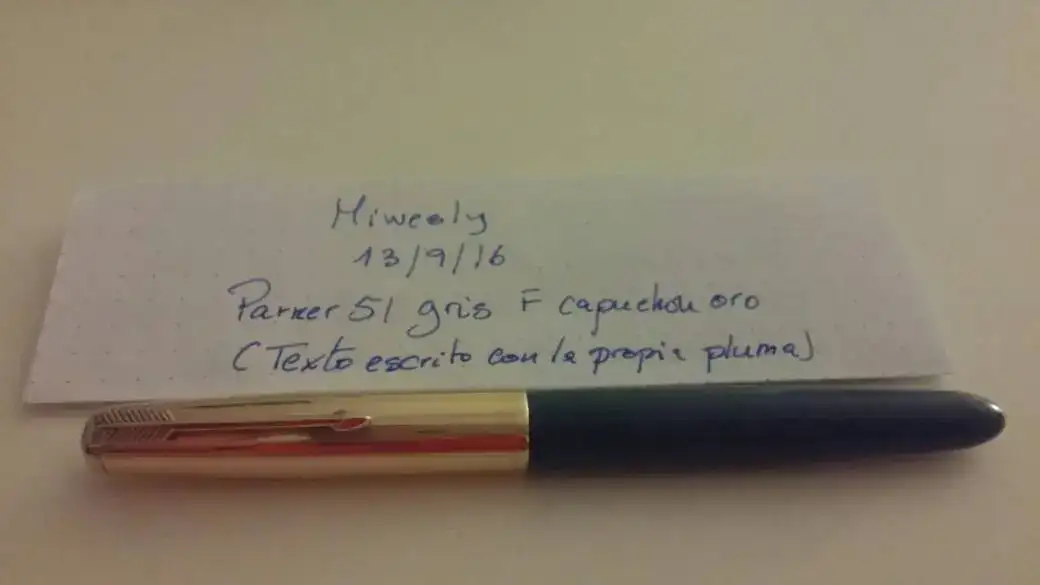 Miwealy
13/9/16
Parker 51 gris F capuchon oro
(Texto escrito con la propia pluma)